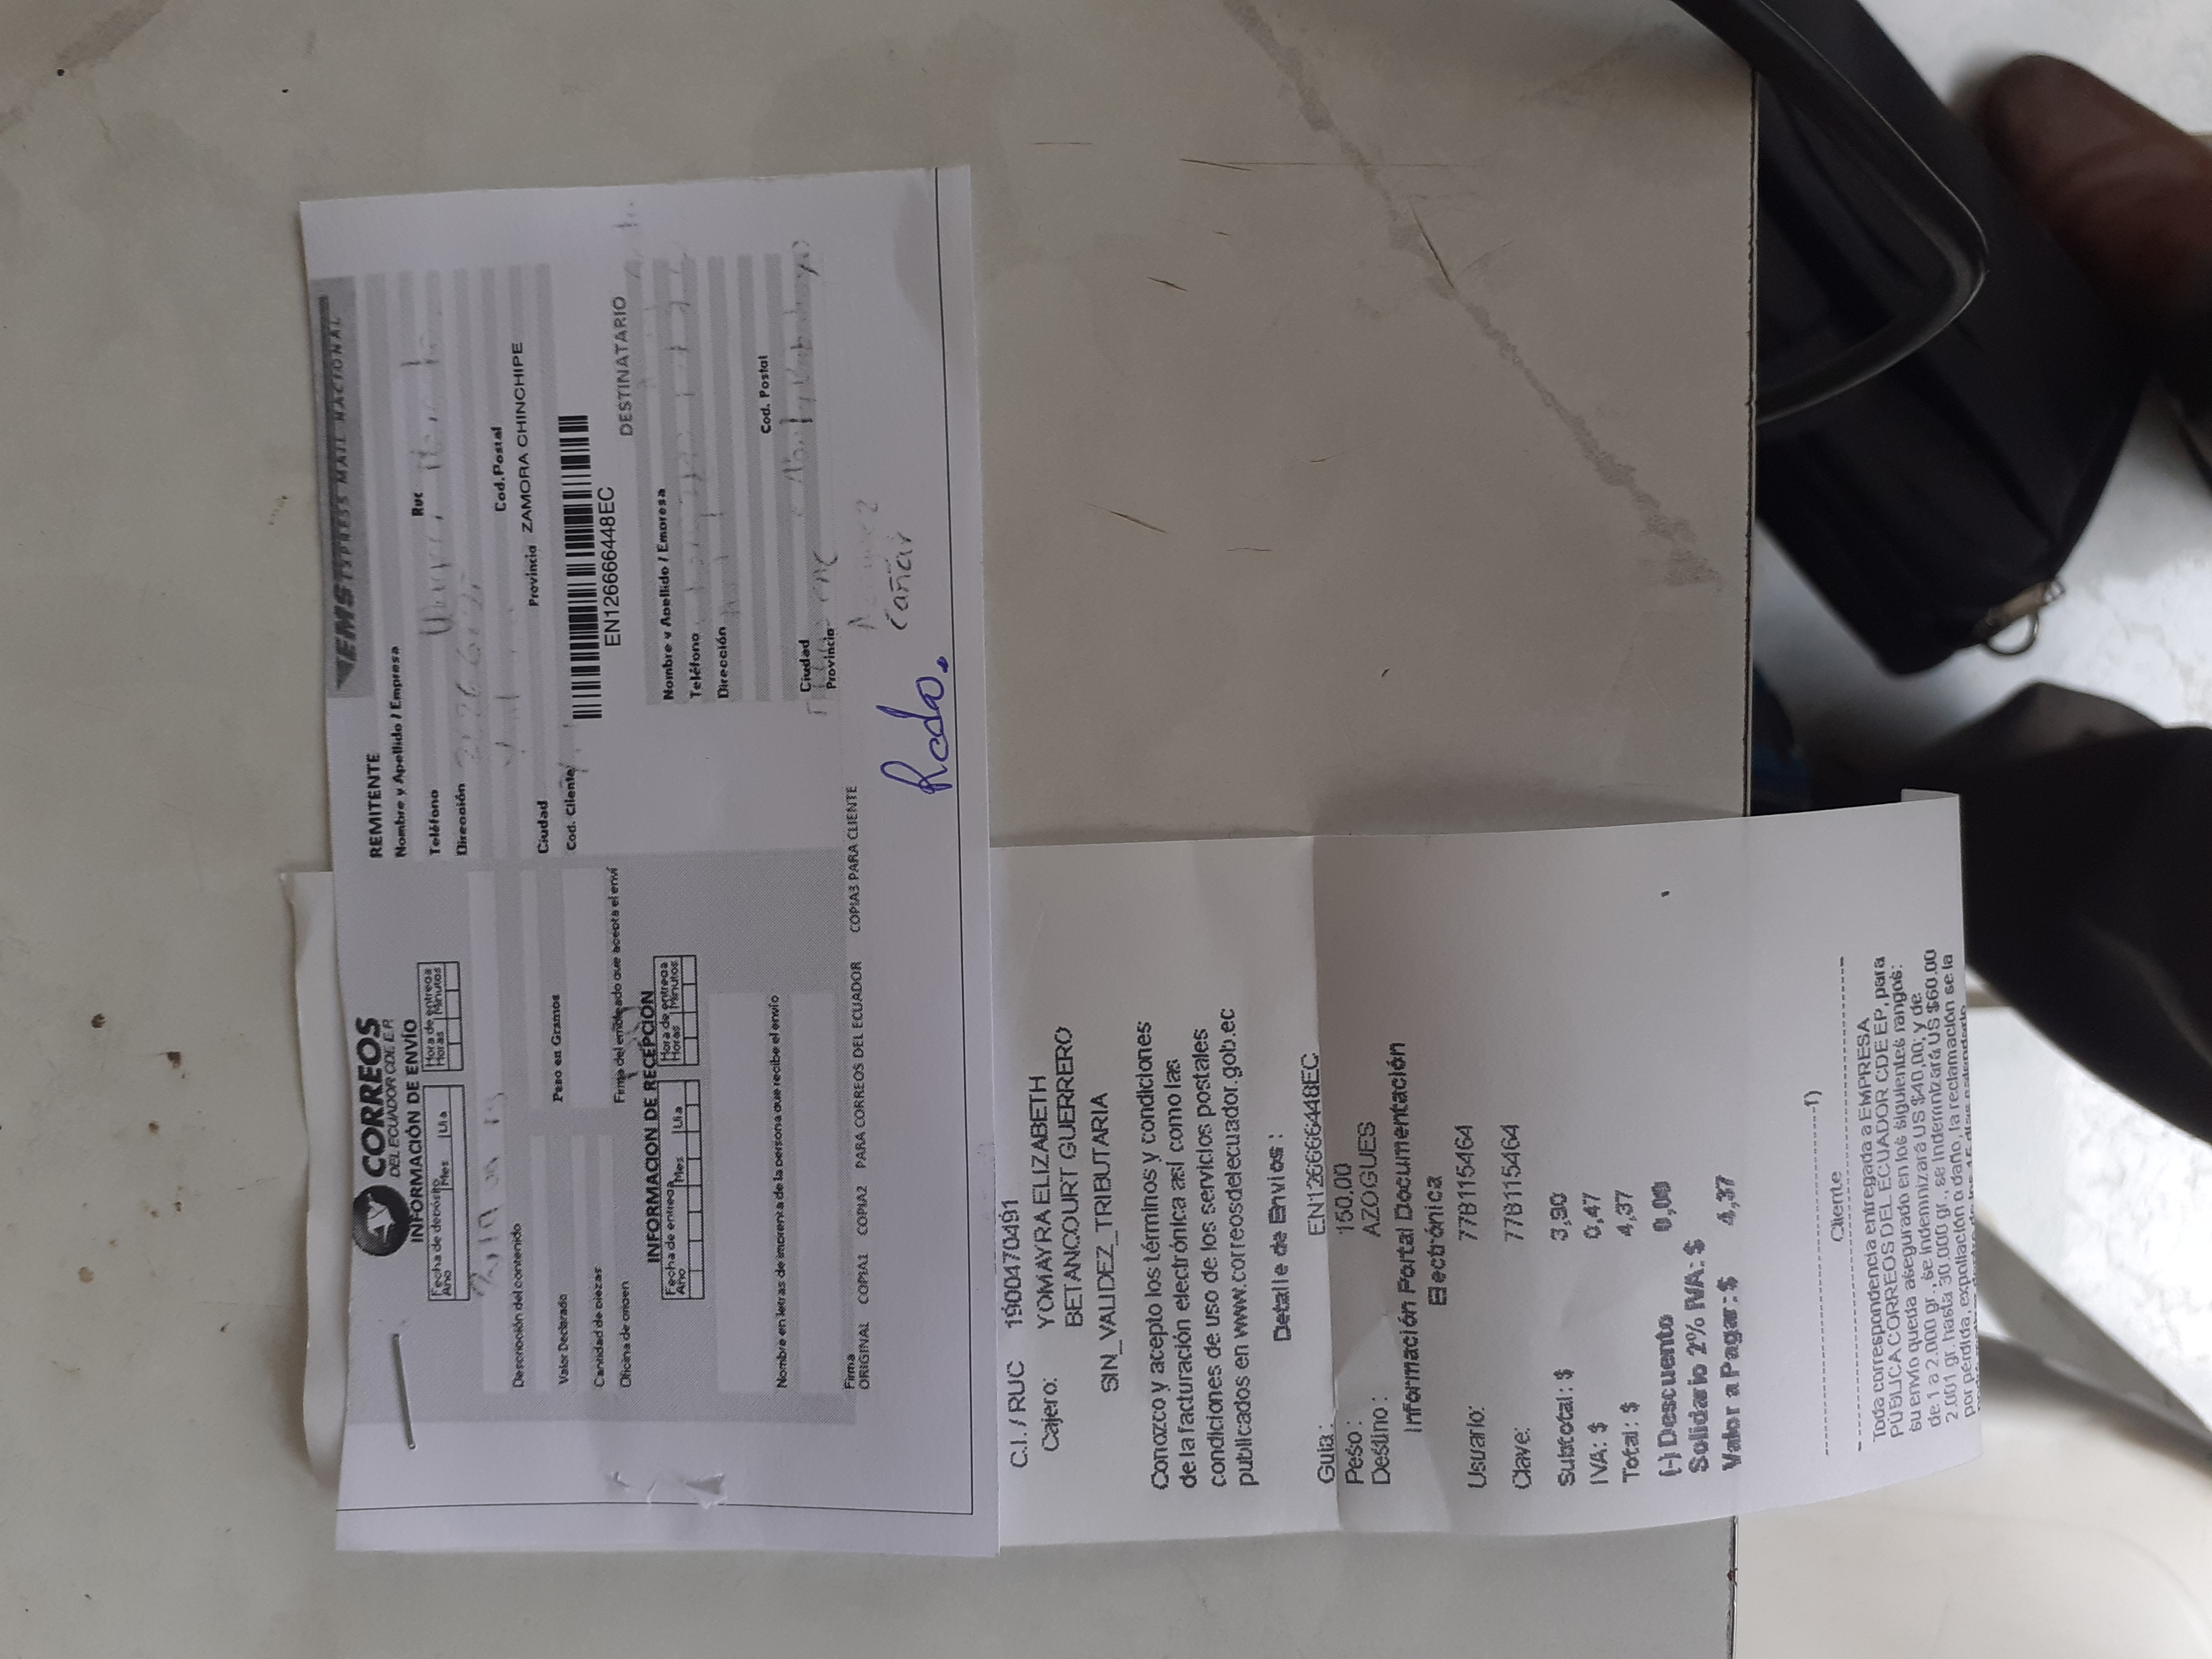 CORREOS
DEL ECUADOR CDE E.P.
INFORMACIÓN DE ENVÍO
Fecha de depósito
Año Mes Día
Hora de entrega
Horas Minutos
Descripción del contenido
Valor Declarado
Peso en Gramos
Cantidad de piezas
Oficina de origen
Firma del empleado que acepta el enví
INFORMACION DE RECEPCIÓN
Fecha de entrega
Año Mes Día
Hora de entrega
Horas Minutos
Nombre en letras de imprenta de la persona que recibe el envío
Firma
ORIGINAL COPIA1 COPIA2 PARA CORREOS DEL ECUADOR COPIA3 PARA CLIENTE
EMS EXPRESS MAIL NACIONAL
REMITENTE
Nombre y Apellido / Empresa
Ruc
Teléfono
Dirección
Cod.Postal
Ciudad
Provincia ZAMORA CHINCHIPE
Cod. Cliente
EN126666448EC
DESTINATARIO
Nombre y Apellido / Empresa
Teléfono
Dirección
Cod. Postal
Ciudad
Provincia
Cañar
Rcdo.
C.I. / RUC 1900470491
Cajero: YOMAYRA ELIZABETH
BETANCOURT GUERRERO
SIN_VALIDEZ_TRIBUTARIA
Conozco y acepto los términos y condiciones
de la facturación electrónica así como las
condiciones de uso de los servicios postales
publicados en www.correosdelecuador.gob.ec
Detalle de Envios :
Guia : EN126666448EC
Peso : 150,00
Destino : AZOGUES
Información Portal Documentación
Electrónica
Usuario: 778115464
Clave: 778115464
Subtotal: $ 3,90
IVA: $ 0,47
Total: $ 4,37
(-) Descuento
Solidario 2% IVA: $ 0,00
Valor a Pagar: $ 4,37
f)
Cliente
Toda correspondencia entregada a EMPRESA
PUBLICA CORREOS DEL ECUADOR CDE EP, para
su envío queda asegurado en los siguientes rangos:
de 1 a 2.000 gr., se indemnizará US $40,00; y de
2.001 gr. hasta 30.000 gr., se indemnizará US $60.00
por pérdida, expoliación o daño, la reclamación se la